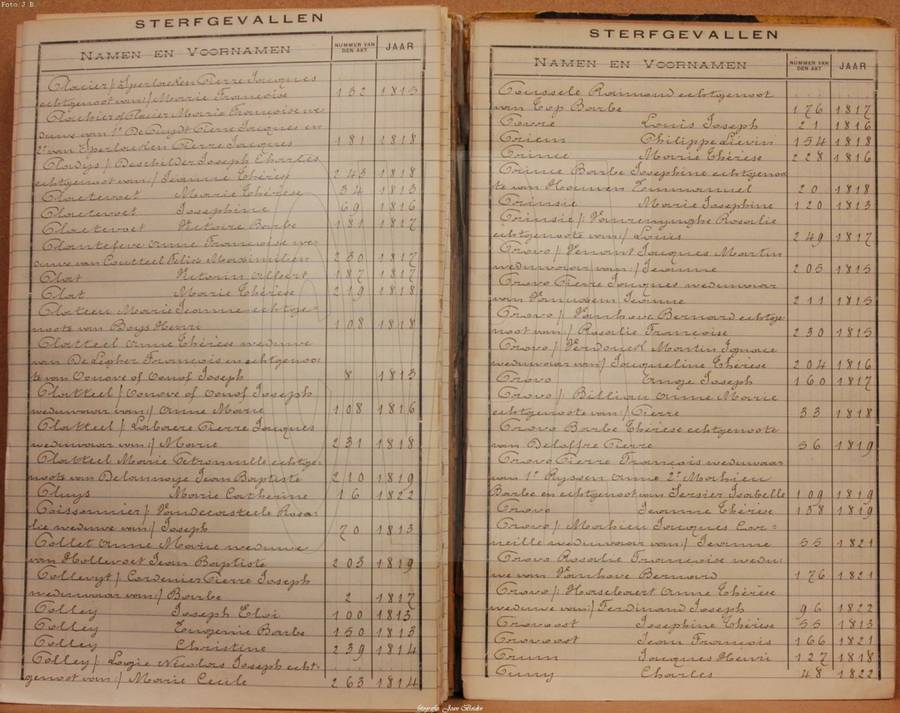 Foto: J B
STERFGEVALLEN
NAMEN EN VOORNAMEN NUMMER VAN DEN AKT JAAR
Clacier / Eperlaecken Pierre Jacques
echtgenoot van / Marie Françoise 152 1815
Claihier of Clacier Marie Françoise we-
duwe van 1° De Puydt Pierre Jacques en
2° van Eperlaecken Pierre Jacques 181 1818
Cladys / Deschilder Joseph Charles
echtgenoot van / Jeanne Thérèse 243 1818
Claetevoet Marie Thérèse 34 1813
Claetevoet Josephine 69 1816
Claetevoet Victoire Barbe 181 1817
Clantefeve Anne Françoise we-
duwe van Coutteel Felix Maximilien 230 1817
Clat Victorin Albert 187 1817
Clat Marie Thérèse 219 1818
Clateeu Marie Jeanne echtge-
noote van Buys Henri 108 1818
Clatteel Anne Thérèse weduwe
van De Lepher François en echtgenoo-
te van Conove of Conof Joseph 8 1813
Clatteel / Conove of Conof Joseph
weduwaar van / Anne Marie 108 1816
Clatteel / Labaere Pierre Jacques
weduwaar van / Marie 231 1818
Clatteel Marie Petronulle echtge-
noote van Delannoye Jean Baptiste 210 1819
Cluys Marie Catherine 16 1822
Coissonnier / Vandecasteele Rosa-
lie weduwe van / Joseph 70 1813
Collet Anne Marie weduwe
van Hollevoet Jean Baptiste 203 1819
Collevyt / Cordenier Pierre Joseph
weduwaar van / Barbe 2 1817
Colley Joseph Eloi 100 1813
Colley Eugenie Barbe 150 1813
Colley Christine 239 1814
Colley / Logie Nicolas Joseph echt-
genoot van / Marie Cecile 263 1814
STERFGEVALLEN
NAMEN EN VOORNAMEN NUMMER VAN DEN AKT JAAR
Coussele Raimond echtgenoot
van Top Barbe 176 1817
Couvre Louis Joseph 21 1816
Criem Philippe Lievin 154 1818
Crince Marie Thérèse 228 1816
Crince Barbe Josephine echtgenoo-
te van Houwen Emmanuel 20 1818
Crinsie Marie Josephine 120 1813
Crinsie / Vanrenynghe Rosalie
echtgenoote van / Louis 249 1817
Crovo / Venant Jacques Martin
weduwaar van / Jeanne 205 1815
Crovo Pierre Jacques weduwaar
van Jeanne 211 1815
Crovo / Vanhove Bernard echtge-
noot van / Rosalie Françoise 230 1815
Crovo / Verdonck Martin Ignace
weduwaar van / Jacqueline Thérèse 204 1816
Crovo Ange Joseph 160 1817
Crovo / Billiau Anne Marie
echtgenoote van / Pierre 33 1818
Crovo Barbe Thérèse echtgenoote
van Delaffre Pierre 56 1819
Crovo Pierre François weduwaar
van 1° Ryssen Anne 2° Mahieu
Barbe en echtgenoot van Tersier Isabelle 109 1819
Crovo Jeanne Thérèse 158 1819
Crovo / Mahieu Jacques Cor-
neille weduwaar van / Jeanne 55 1821
Crovo Rosalie Françoise wedu-
we van Vanhove Bernard 176 1821
Crovo / Hasebaert Anne Thérèse
weduwe van / Ferdinand Joseph 96 1822
Crovoost Josephine Thérèse 55 1813
Crovoost Jean François 166 1821
Crum Jacques Henri 127 1818
Cuny Charles 48 1822